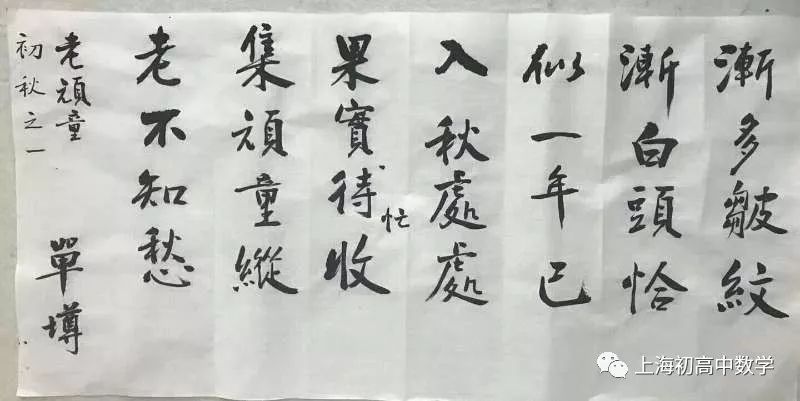 漸多皺紋
漸白頭恰
似一年已
入秋處處
果實待收
忙
集頑童縱
老不知愁
老頑童
初秋之一
單墫
上海初高中数学